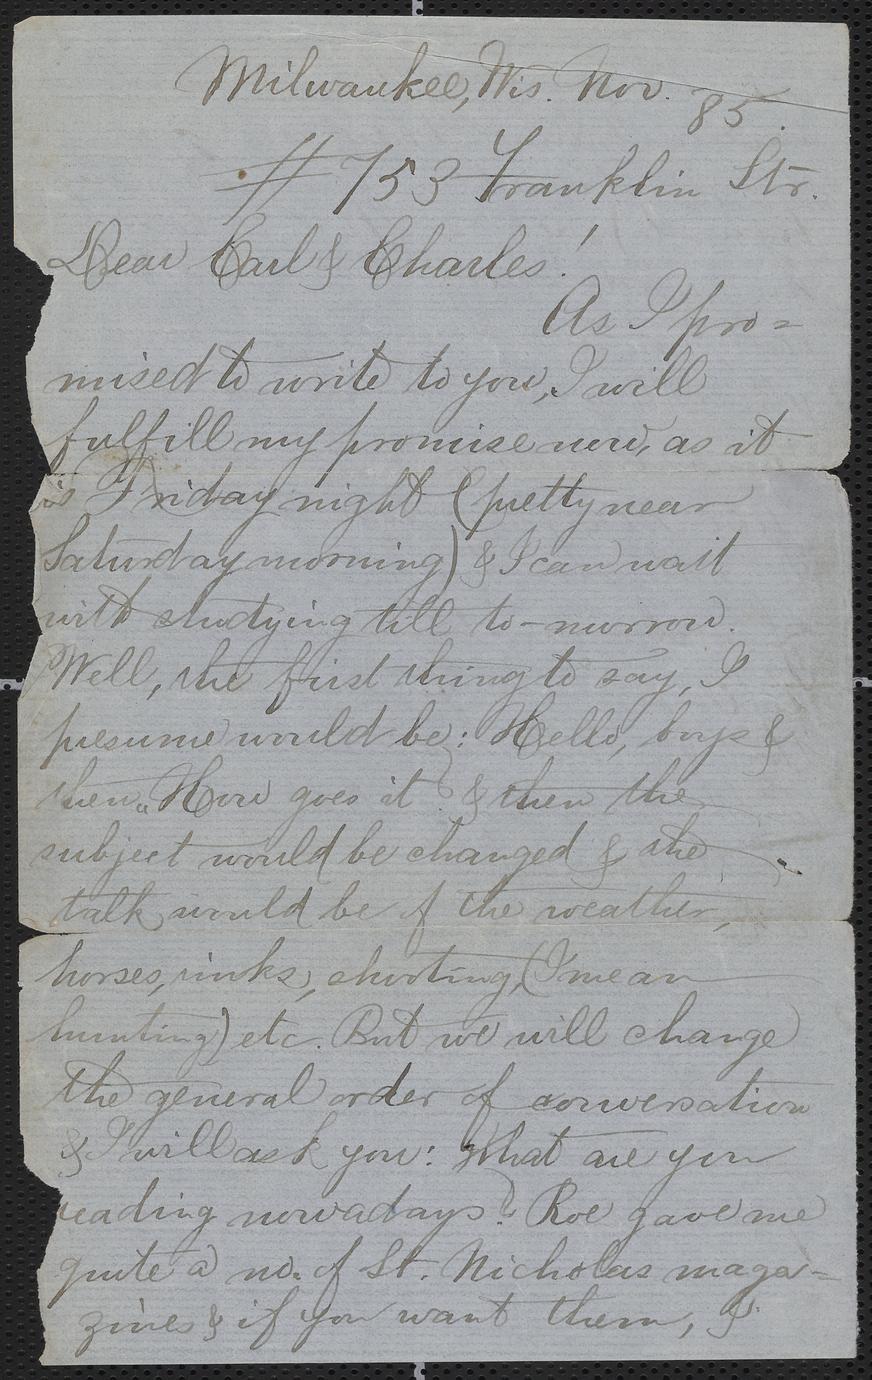 Milwaukee, Wis. Nov. 85.
# 753 Franklin Str.
Dear Carl & Charles!
As I pro=
mised to write to you, I will
fulfill my promise now, as it
is Friday night (pretty near
Saturday morning) & I can wait
with studying till to-morrow.
Well, the first thing to say, I
presume would be: Hello, boys &
then „How goes it & then the
subject would be changed & the
talk would be of the weather,
horses, rinks, shooting, (I mean
hunting) etc. But we will change
the general order of conversation
& I will ask you: What are you
reading nowadays? Roe gave me
quite a no. of St. Nicholas maga=
zines & if you want them, I